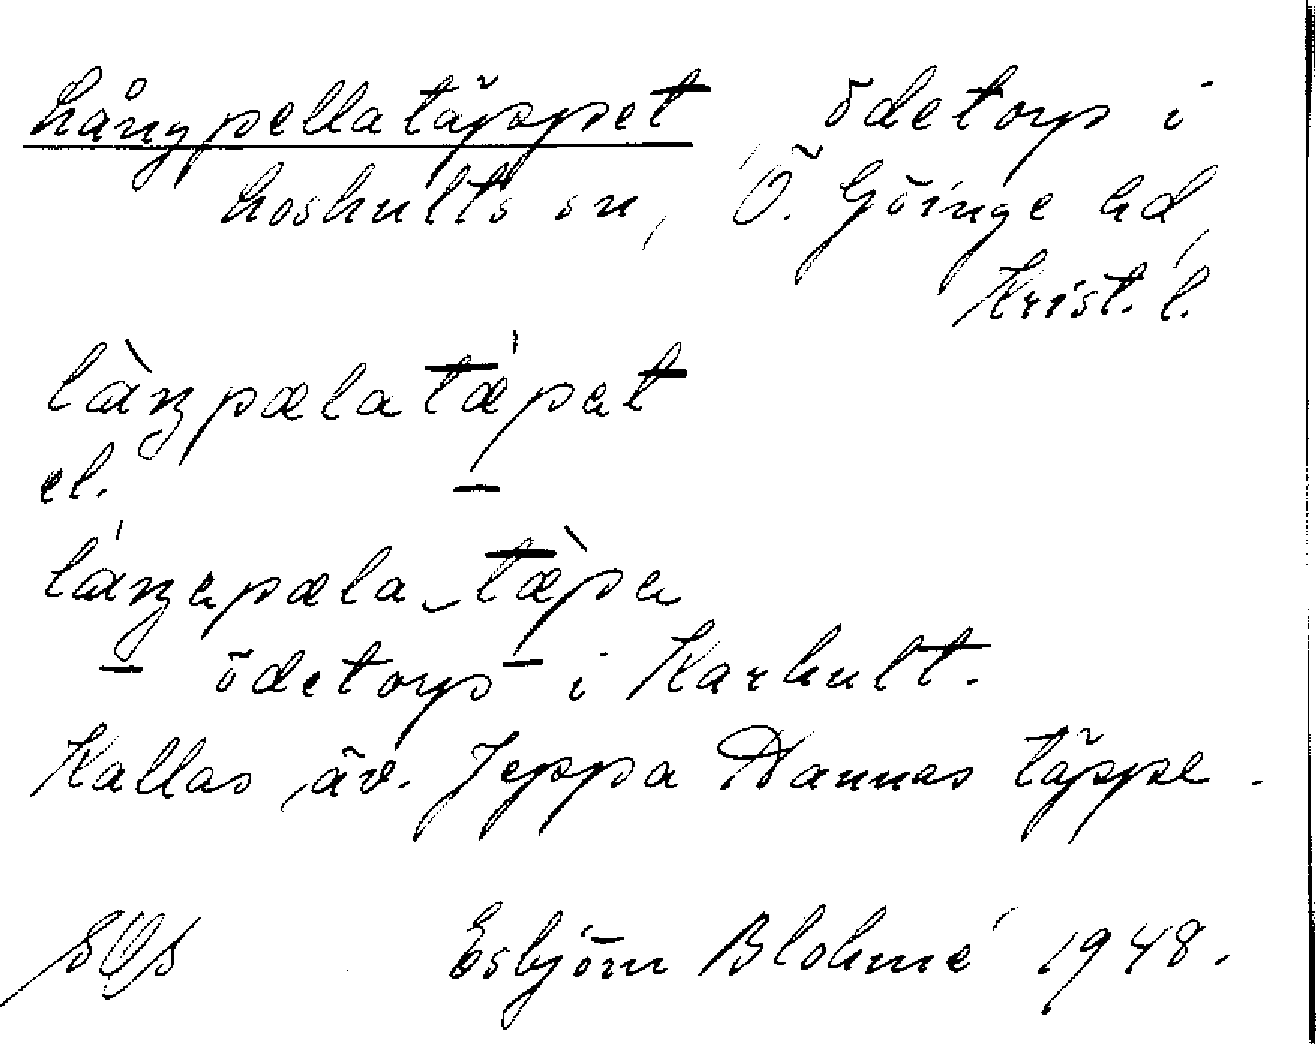 Långpellatäppet ödetorp i
Loshults sn, Ö. Göinge hd,
Krist. l.
làŋpælatǽpət
el.
láŋəpæla_tæ̀pə
– ödetorp – i Karhult.
Kallas äv. Jeppa Nannas täppe.
Esbjörn Blohmé 1948.